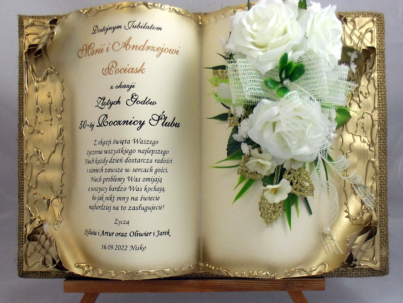 Dostojnym Jubilatom
Marii i Andrzejowi
Pociask
z okazji
Złotych Godów
50-tej Rocznicy Ślubu
Z okazji święta Waszego
życzenia wszystkiego najlepszego
Niech każdy dzień dostarcza radości
i uśmiech zawsze w sercach gości.
Niech problemy Was omijają
a wszyscy bardzo Was kochają,
bo jak nikt inny na świecie
najbardziej na to zasługujecie!
Życzą
i Artur oraz Oliwier i Jarek
14.09.2022 Nisko